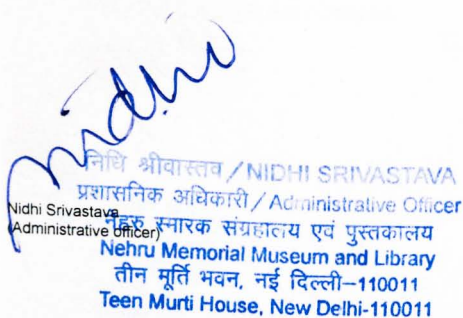 Nidhi
निधि श्रीवास्तव / NIDHI SRIVASTAVA
प्रशासनिक अधिकारी / Administrative Officer
Nidhi Srivastava
(Administrative officer)
नेहरू स्मारक संग्रहालय एवं पुस्तकालय
Nehru Memorial Museum and Library
तीन मूर्ति भवन, नई दिल्ली–110011
Teen Murti House, New Delhi-110011